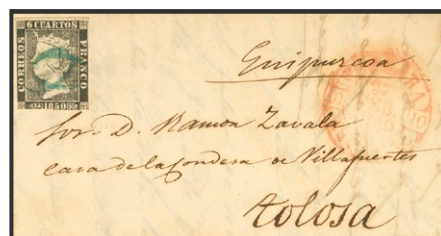 6 CUARTOS
CORREOS
FRANCO
1850
Guipuzcoa
Sor. D. Ramon Zavala
casa de la Condesa de Villafuertes
Tolosa